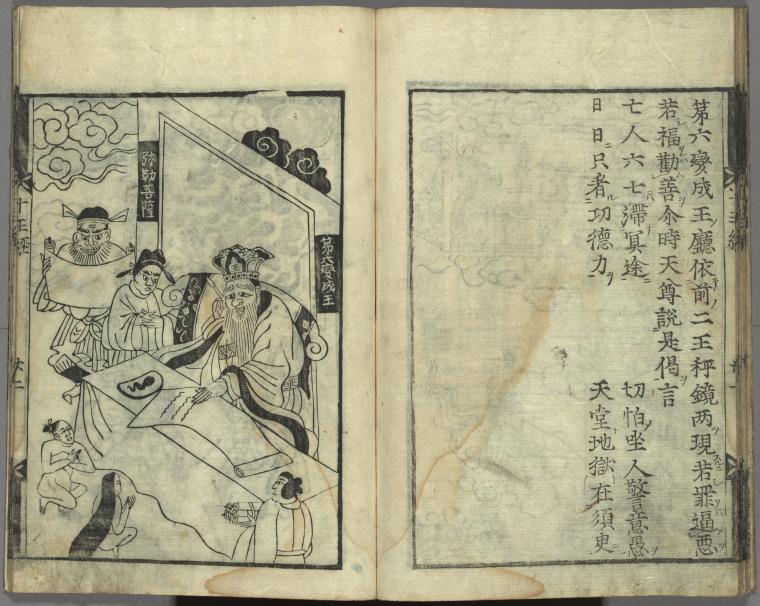 第六變成王廳依前二王秤鏡两現若罪逼悪
若福勸善尒時天尊説是偈言
亡人六七滞冥途
切怕坐人警意愚
日日只看功德力
天堂地獄在須臾
弥勒菩薩
第六變成王
十王經